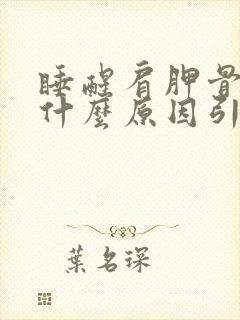 睡醒肩胛骨
什麼原因引
葉名琛